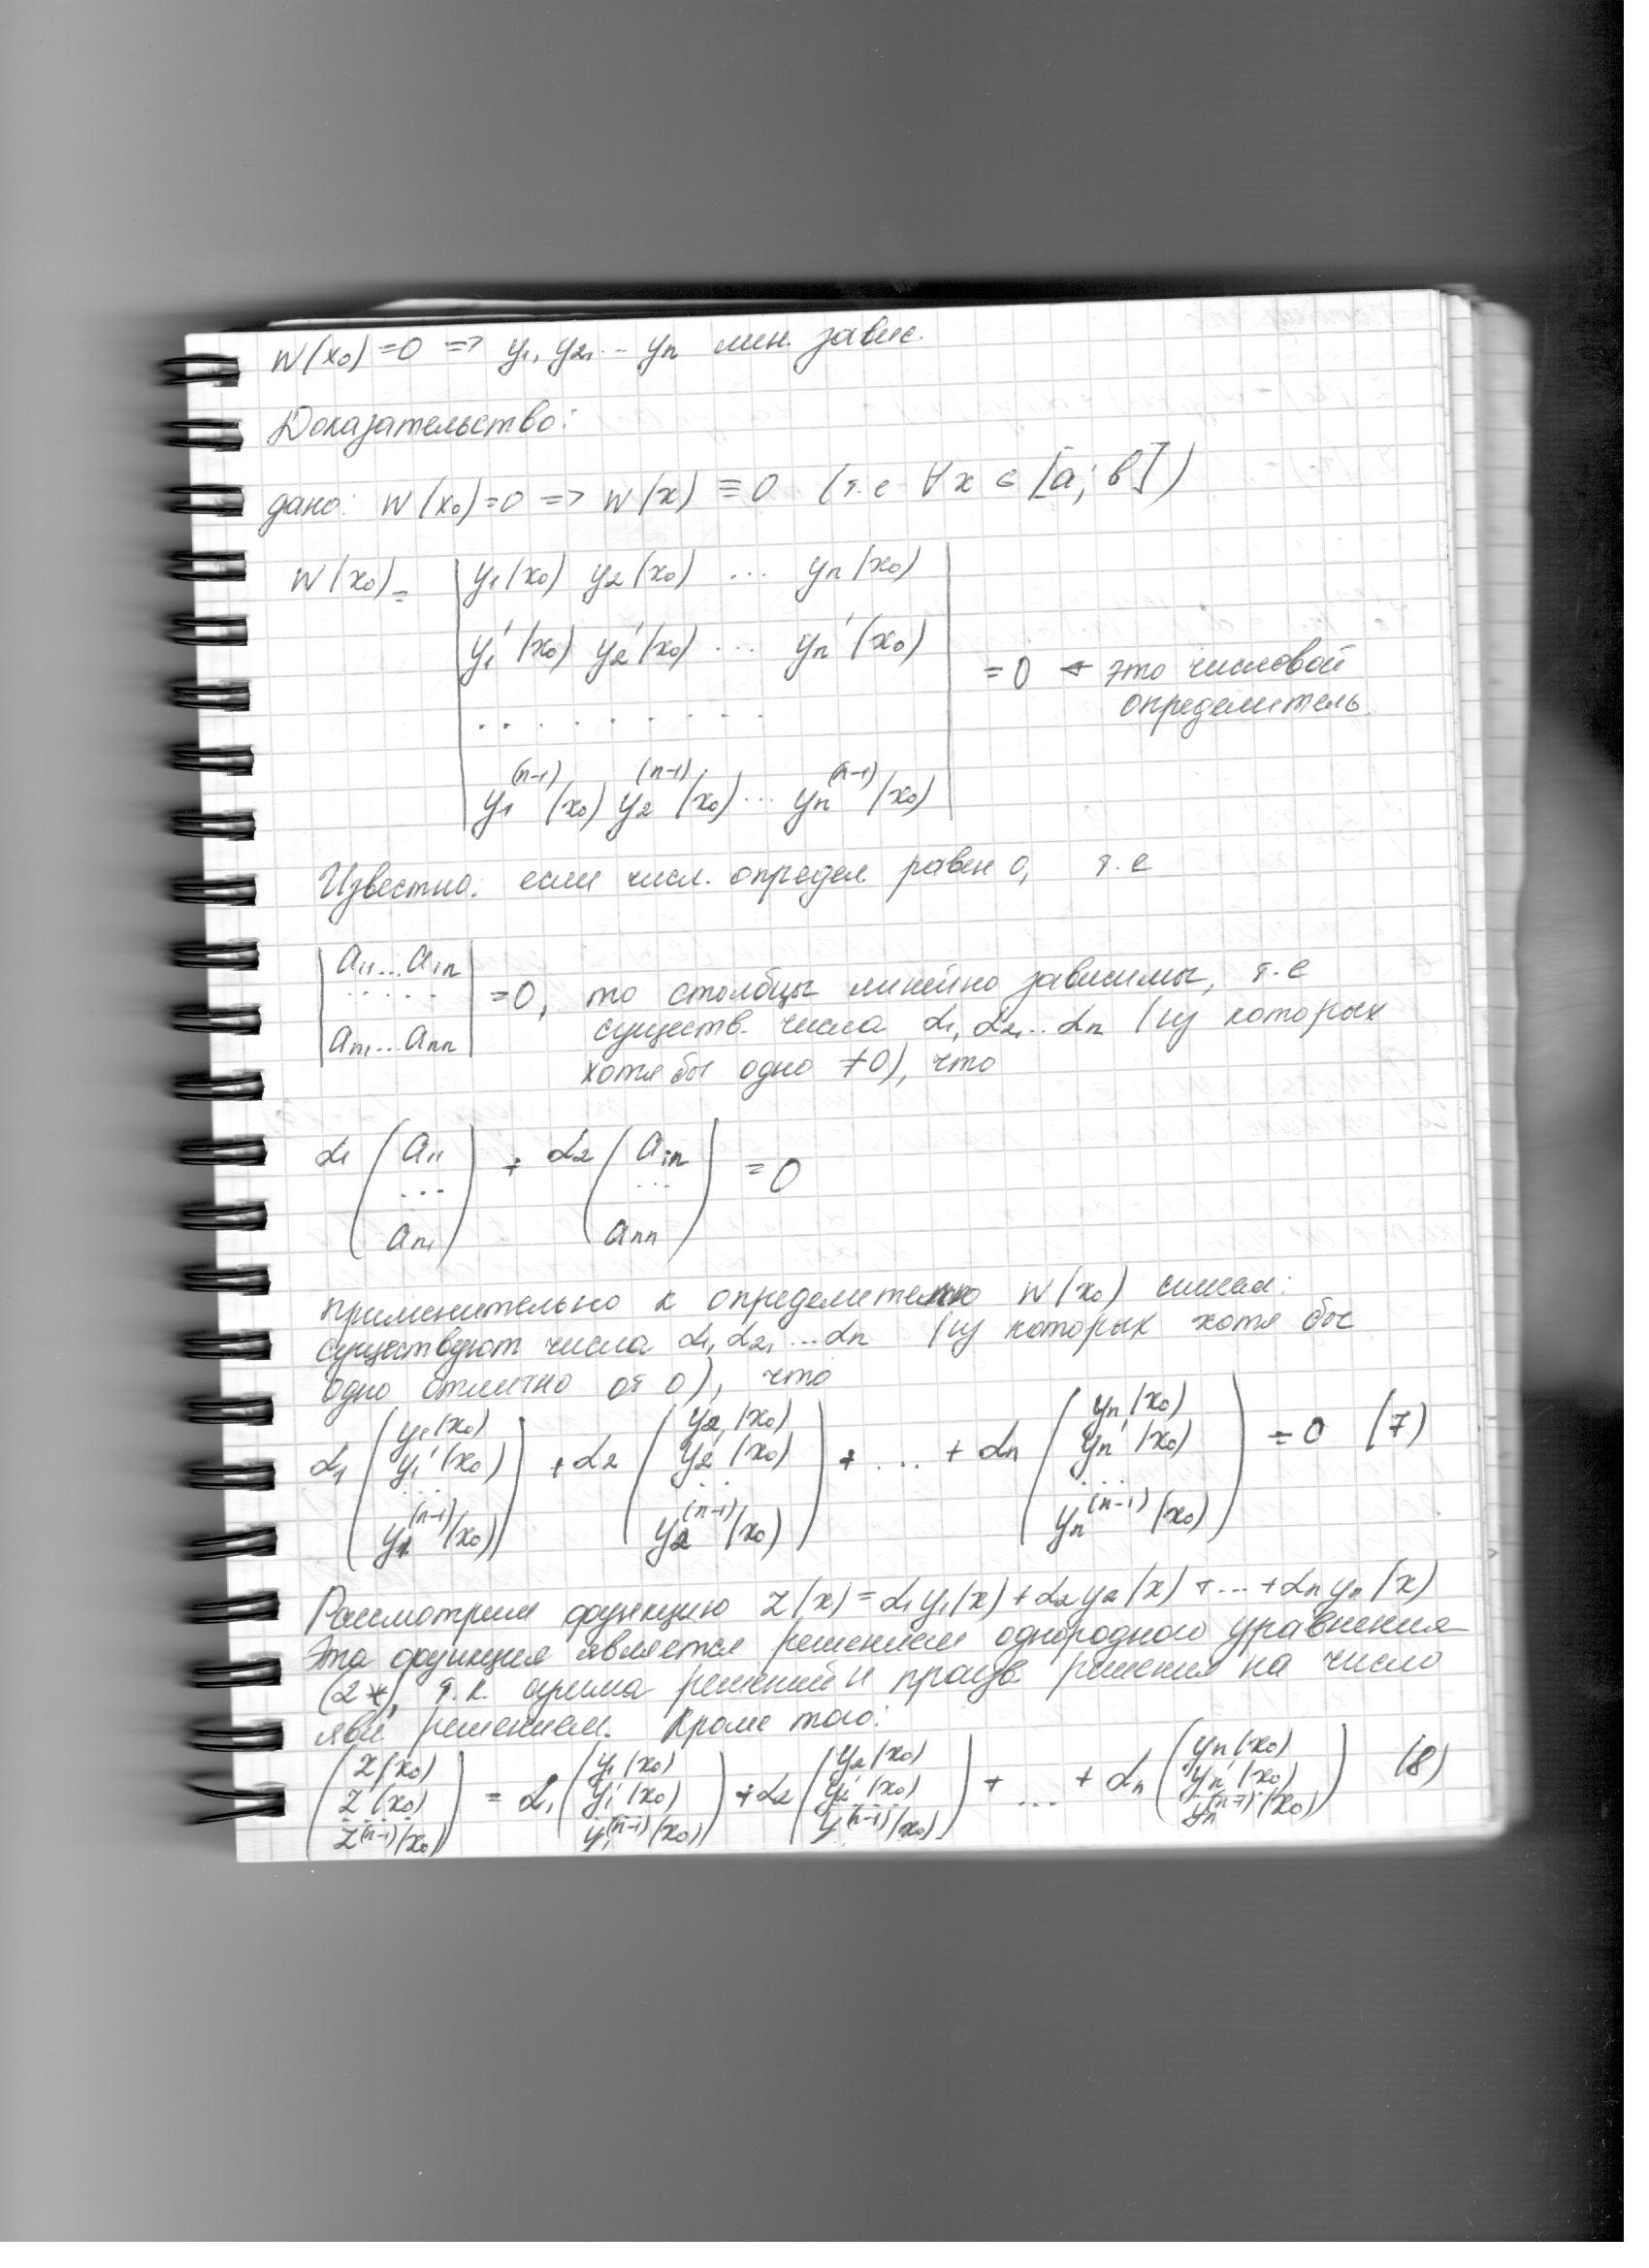 W(x₀)=0 => y₁, y₂, ... yₙ лин. завис.
Доказательство:
дано: W(x₀)=0 => W(x) ≡ 0 (т.е ∀x ∈ [a; b])
W(x₀) = | y₁(x₀) y₂(x₀) ... yₙ(x₀) |
y₁'(x₀) y₂'(x₀) ... yₙ'(x₀)
. . . . . . . . . = 0 ← это числовой
определитель.
y₁⁽ⁿ⁻¹⁾(x₀) y₂⁽ⁿ⁻¹⁾(x₀) ... yₙ⁽ⁿ⁻¹⁾(x₀)
Известно: если числ. определ. равен 0, т.е
| a₁₁...a₁ₙ |
. . . . . =0, то столбцы линейно зависимы, т.е
| aₙ₁...aₙₙ | существ. числа α₁, α₂, .. αₙ (из которых
хотя бы одно ≠0), что
α₁ ( a₁₁ ... aₙ₁ ) + α₂ ( a₁ₙ ... aₙₙ ) = 0
применительно к определителю W(x₀) имеем:
существуют числа α₁, α₂, ... αₙ (из которых хотя бы
одно отлично от 0), что
α₁ ( y₁(x₀) y₁'(x₀) ... y₁⁽ⁿ⁻¹⁾(x₀) ) + α₂ ( y₂(x₀) y₂'(x₀) ... y₂⁽ⁿ⁻¹⁾(x₀) ) + ... + αₙ ( yₙ(x₀) yₙ'(x₀) ... yₙ⁽ⁿ⁻¹⁾(x₀) ) = 0 (7)
Рассмотрим функцию Z(x) = α₁y₁(x) + α₂y₂(x) + ... + αₙyₙ(x)
Эта функция является решением однородного уравнения
(2*), т.к. сумма решений и произв. решения на число
явл решением. Кроме того:
( Z(x₀) Z'(x₀) ... Z⁽ⁿ⁻¹⁾(x₀) ) = α₁ ( y₁(x₀) y₁'(x₀) y₁⁽ⁿ⁻¹⁾(x₀) ) + α₂ ( y₂(x₀) y₂'(x₀) y⁽ⁿ⁻¹⁾(x₀) ) + ... + αₙ ( yₙ(x₀) yₙ'(x₀) yₙ⁽ⁿ⁻¹⁾(x₀) ) (8)